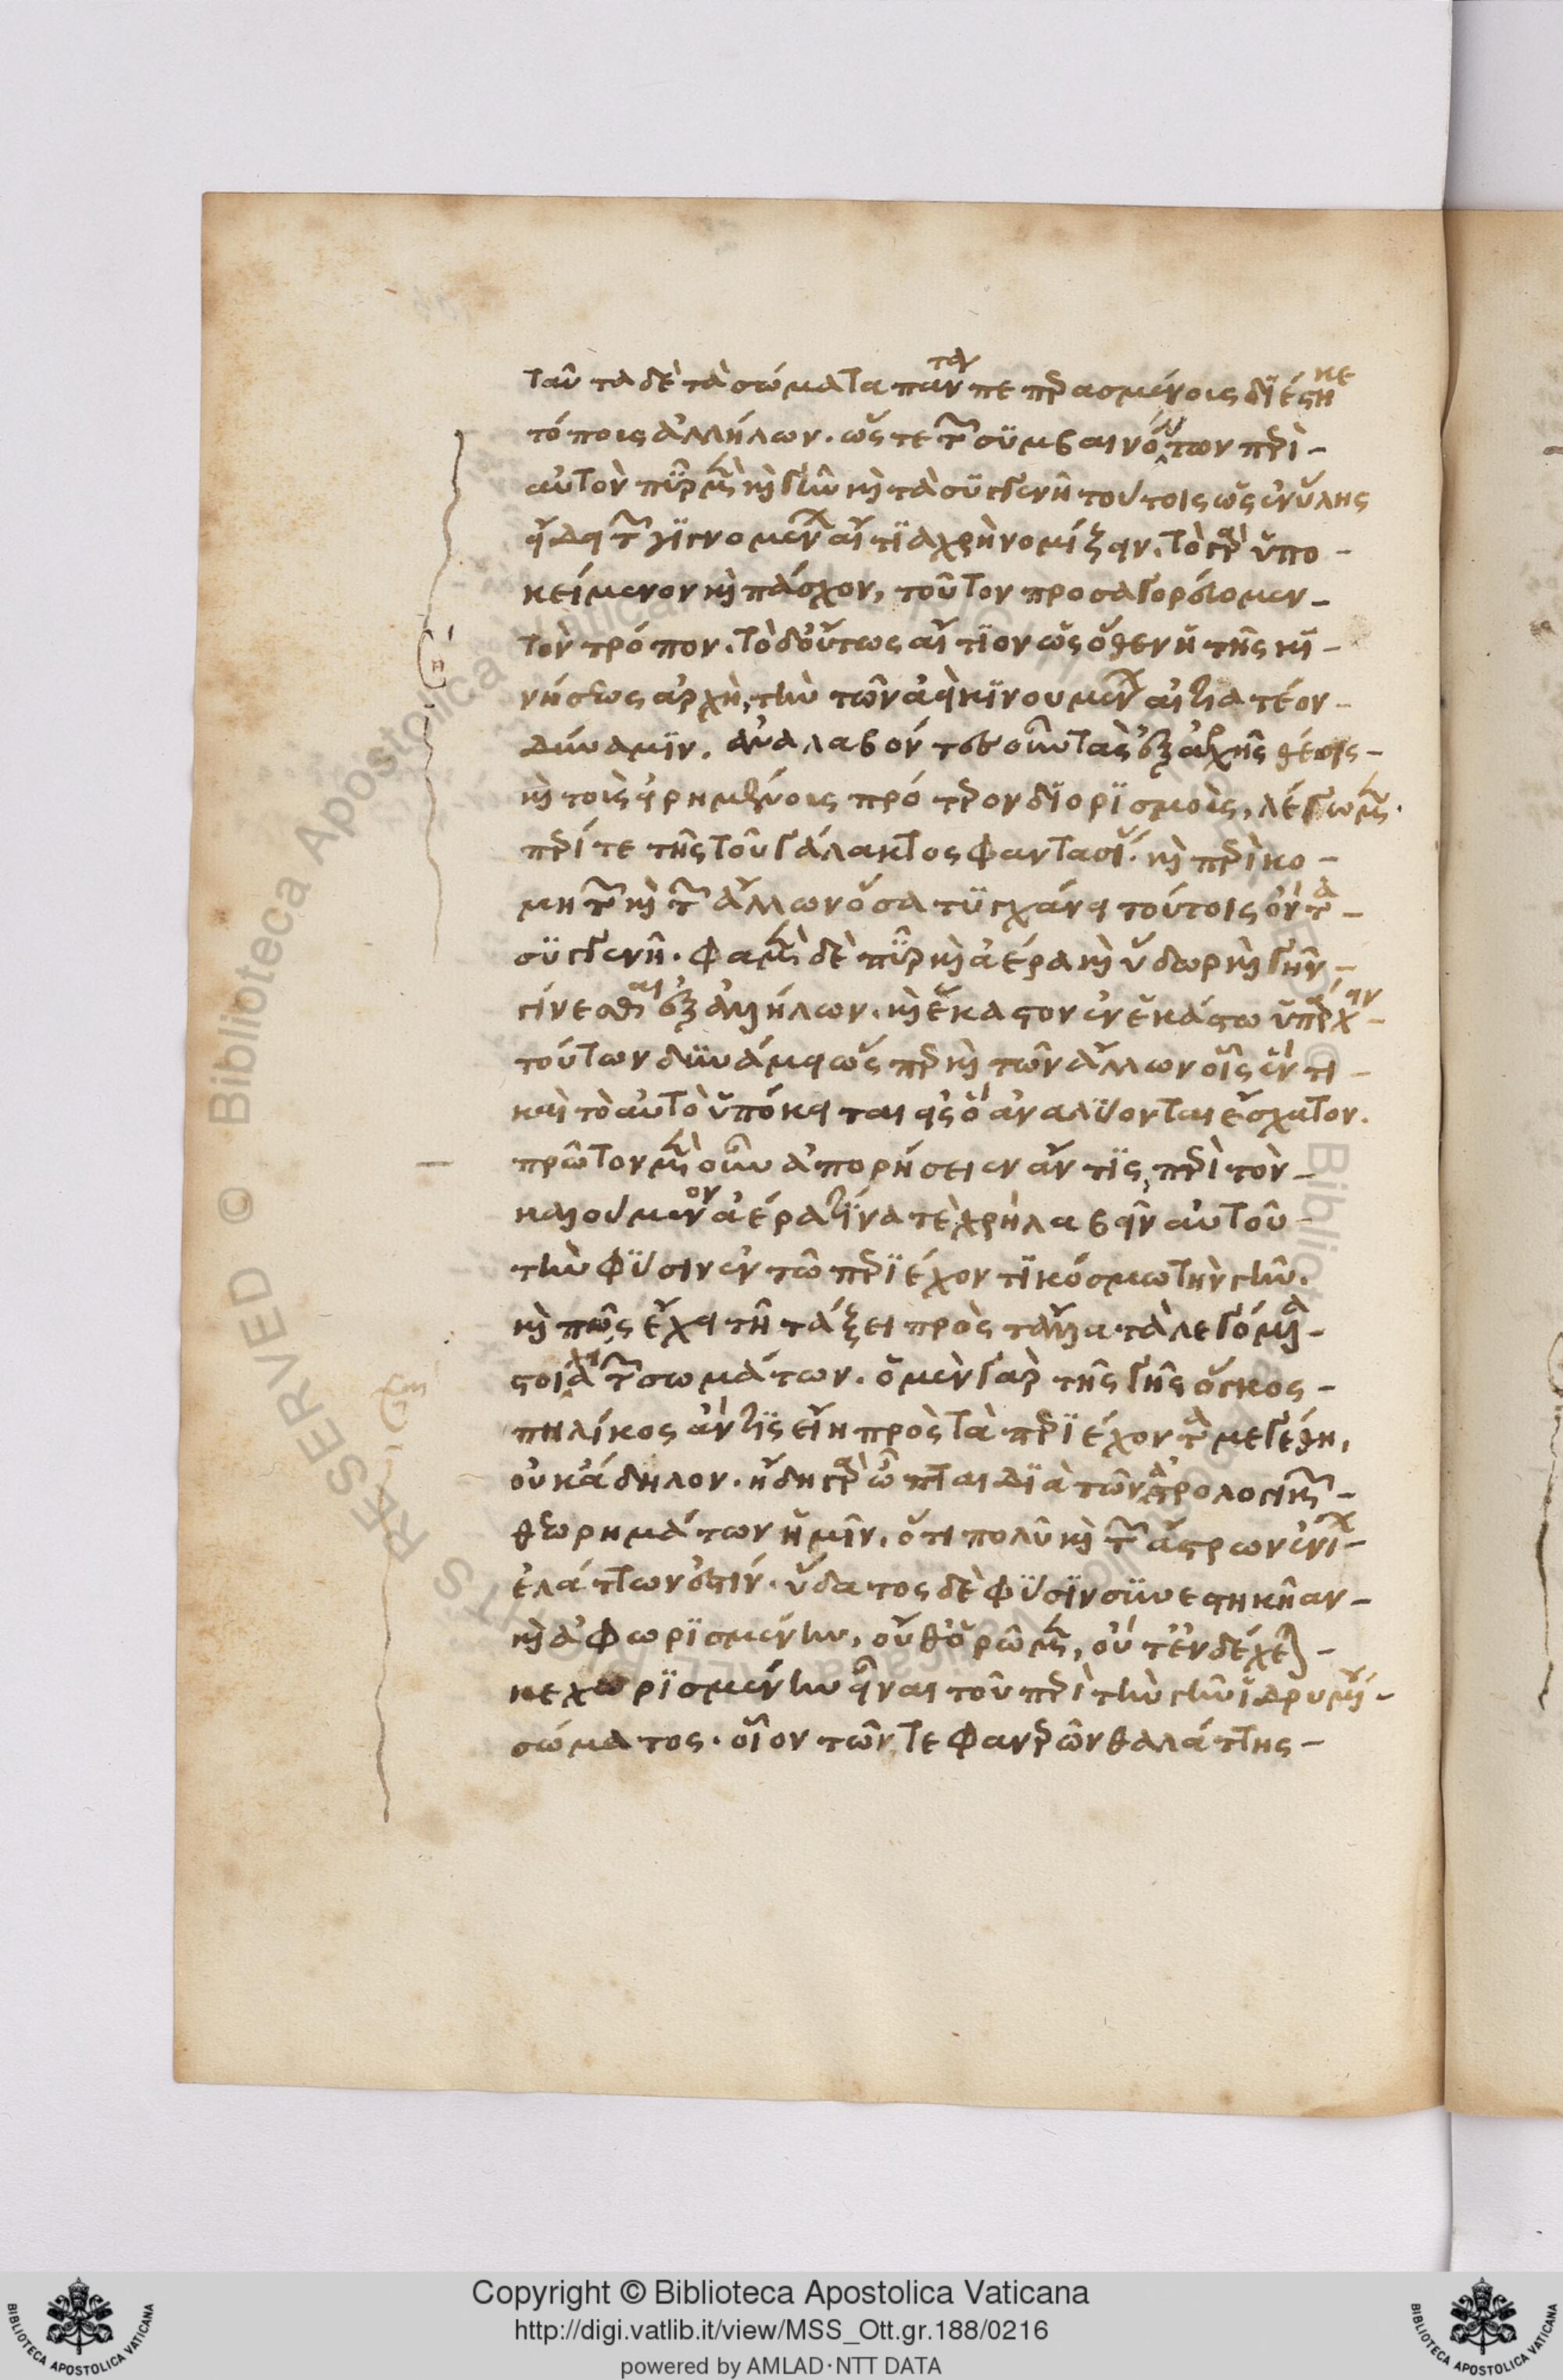 ταῦτα δὲ τὰ σώματα πάντα πεπερασμένοις διέστηκε
τόποις ἀλλήλων. ὥστε τῶν συμβαινόντων περὶ
αὐτὸν πῦρ μὲν καὶ γῆν καὶ τὰ συγγενῆ τούτοις ὡς ἐν ὕλης
εἴδει τῶν γινομένων αἴτια χρὴ νομίζειν. τὸ γὰρ ὑπο-
κείμενον καὶ πάσχον, τοῦτον προσαγορεύομεν
τὸν τρόπον. τὸ δ' οὕτως αἴτιον ὡς ὅθεν ἡ τῆς κι-
νήσεως ἀρχὴ, τὴν τῶν ἀεὶ κινουμένων αἰτιατέον
δύναμιν. ἀναλαβόντες οὖν τὰς ἐξ ἀρχῆς θέσεις
καὶ τοῖς εἰρημένοις πρότερον διορισμοῖς, λέγωμεν.
περί τε τῆς τοῦ γάλακτος φαντασίας. καὶ περὶ κο-
μητῶν καὶ τῶν ἄλλων ὅσα τυγχάνει τούτοις ὄντα
συγγενῆ. φαμὲν δὲ πῦρ καὶ ἀέρα καὶ ὕδωρ καὶ γῆν
γίνεσθαι ἐξ ἀλλήλων. καὶ ἕκαστον ἐν ἑκάστω ὑπάρχειν
τούτων δυνάμει ὥσπερ καὶ τῶν ἄλλων οἷς ἕν τι
καὶ τὸ αὐτὸ ὑπόκειται εἰς ὃ ἀναλύονται ἔσχατον.
πρῶτον μὲν οὖν ἀπορήσειεν ἄν τις, περὶ τὸν
καλούμενον ἀέρα τίνα τε χρὴ λαβεῖν αὐτοῦ
τὴν φύσιν ἐν τῶ περιέχοντι κόσμω τὴν γῆν.
καὶ πῶς ἔχει τῆ τάξει πρὸς τἆλλα τὰ λεγόμενα
στοιχεῖα τῶν σωμάτων. ὁ μὲν γὰρ τῆς γῆς ὄγκος
πηλίκος ἄν τις εἴη πρὸς τὰ περιέχοντα μεγέθη,
οὐκ ἄδηλον. ἤδη γὰρ ὦπται διὰ τῶν ἀστρολογικῶν
θεωρημάτων ἡμῖν, ὅτι πολὺ καὶ τῶν ἄστρων ἐνίων
ἐλάττων ἐστίν. ὕδατος δὲ φύσιν συνεστηκῆαν
καὶ ἀφωρισμένην, οὔθ' ὁρῶμεν, οὔτ' ἐνδέχεται
κεχωρισμένην εἶναι τοῦ περὶ τὴν γῆν ἱδρυμένου
σώματος. οἷον τῶν τε φανερῶν θαλάττης
Copyright © Biblioteca Apostolica Vaticana
http://digi.vatlib.it/view/MSS_Ott.gr.188/0216
powered by AMLAD·NTT DATA